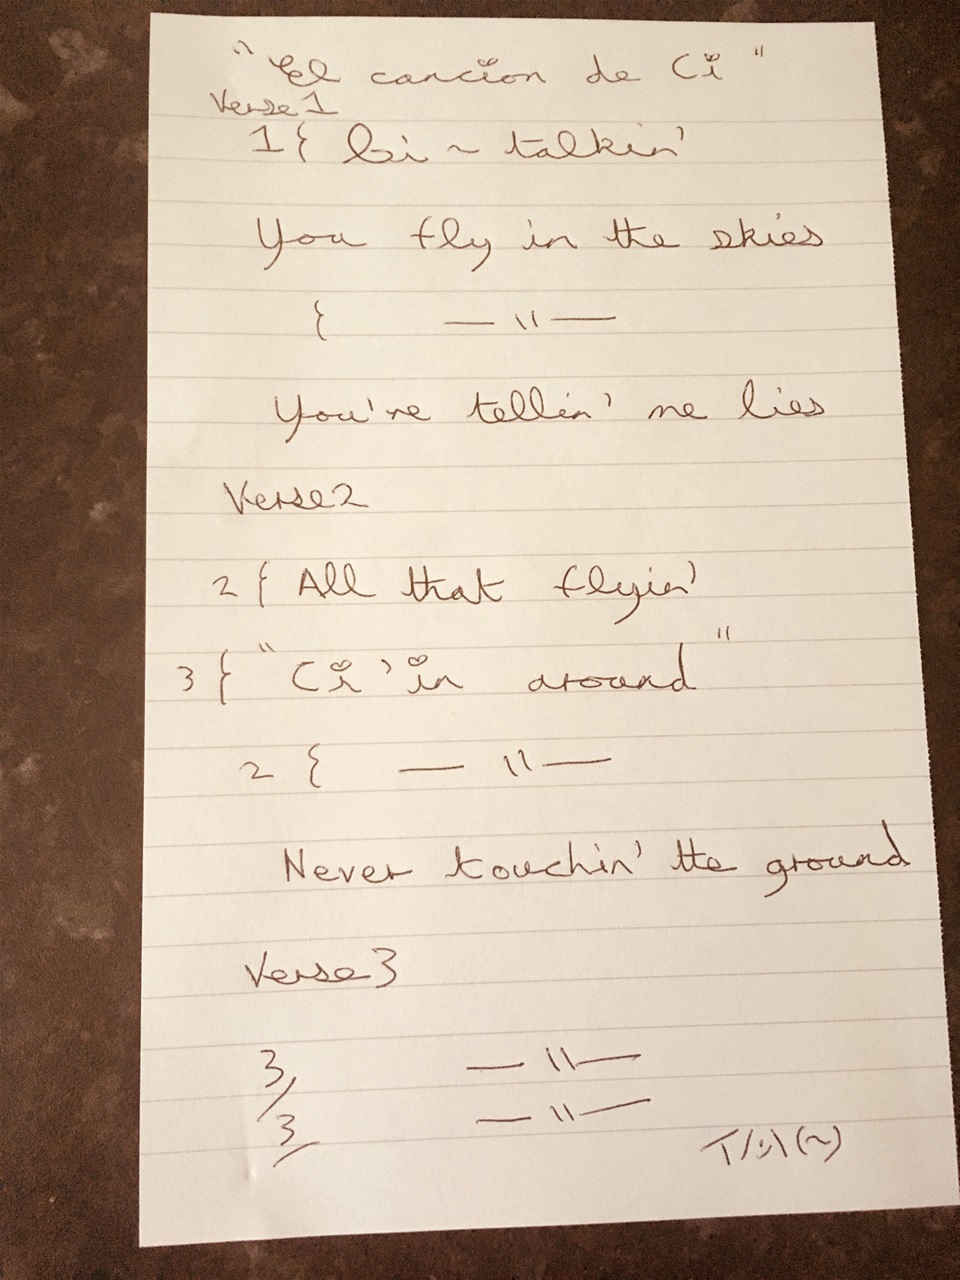 "El cancion de Ci"
Verse 1
1{ bi ~ talkin'
You fly in the skies
{ — " —
You're tellin' me lies
Verse 2
2{ All that flyin'
3{ "Ci'in around"
2{ — " —
Never touchin' the ground
Verse 3
3/ — " —
3/ — " —